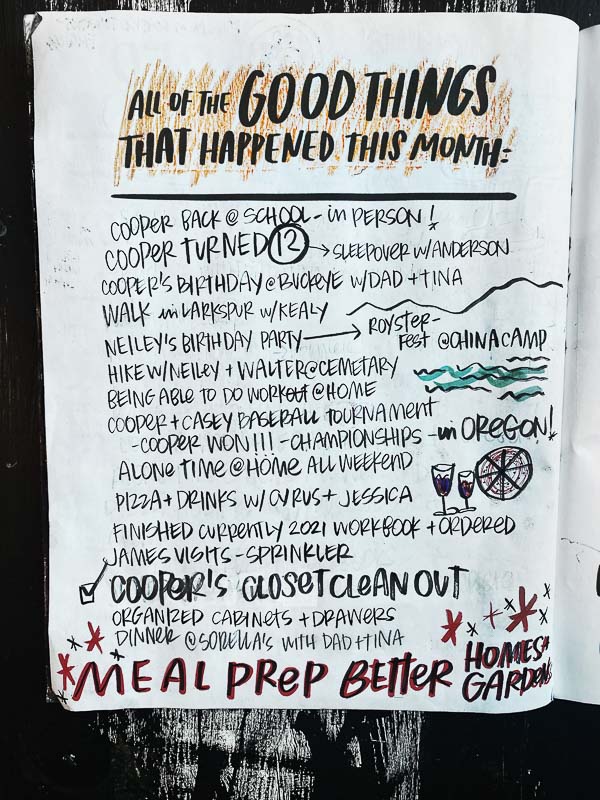 ALL OF THE GOOD THINGS
THAT HAPPENED THIS MONTH:
COOPER BACK @ SCHOOL - in PERSON!
COOPER TURNED 12 → SLEEPOVER W/ANDERSON
COOPER'S BIRTHDAY @ BUCKEYE W/DAD + TINA
WALK in LARKSPUR W/KEALY
NEILEY'S BIRTHDAY PARTY → ROYSTER-
FEST @CHINA CAMP
HIKE W/NEILEY + WALTER@CEMETARY
BEING ABLE TO DO WORKOUT @HOME
COOPER + CASEY BASEBALL TOURNAMENT
-COOPER WON!!! -CHAMPIONSHIPS -in OREGON!
ALONE TIME @ HOME ALL WEEKEND
PIZZA + DRINKS W/ CYRUS + JESSICA
FINISHED CURRENTLY 2021 WORKBOOK + ORDERED
JAMES VISITS - SPRINKLER
COOPER'S CLOSET CLEAN OUT
ORGANIZED CABINETS + DRAWERS
DINNER @SORELLA'S WITH DAD + TINA
MEAL PREP BETTER HOMES +
GARDENS